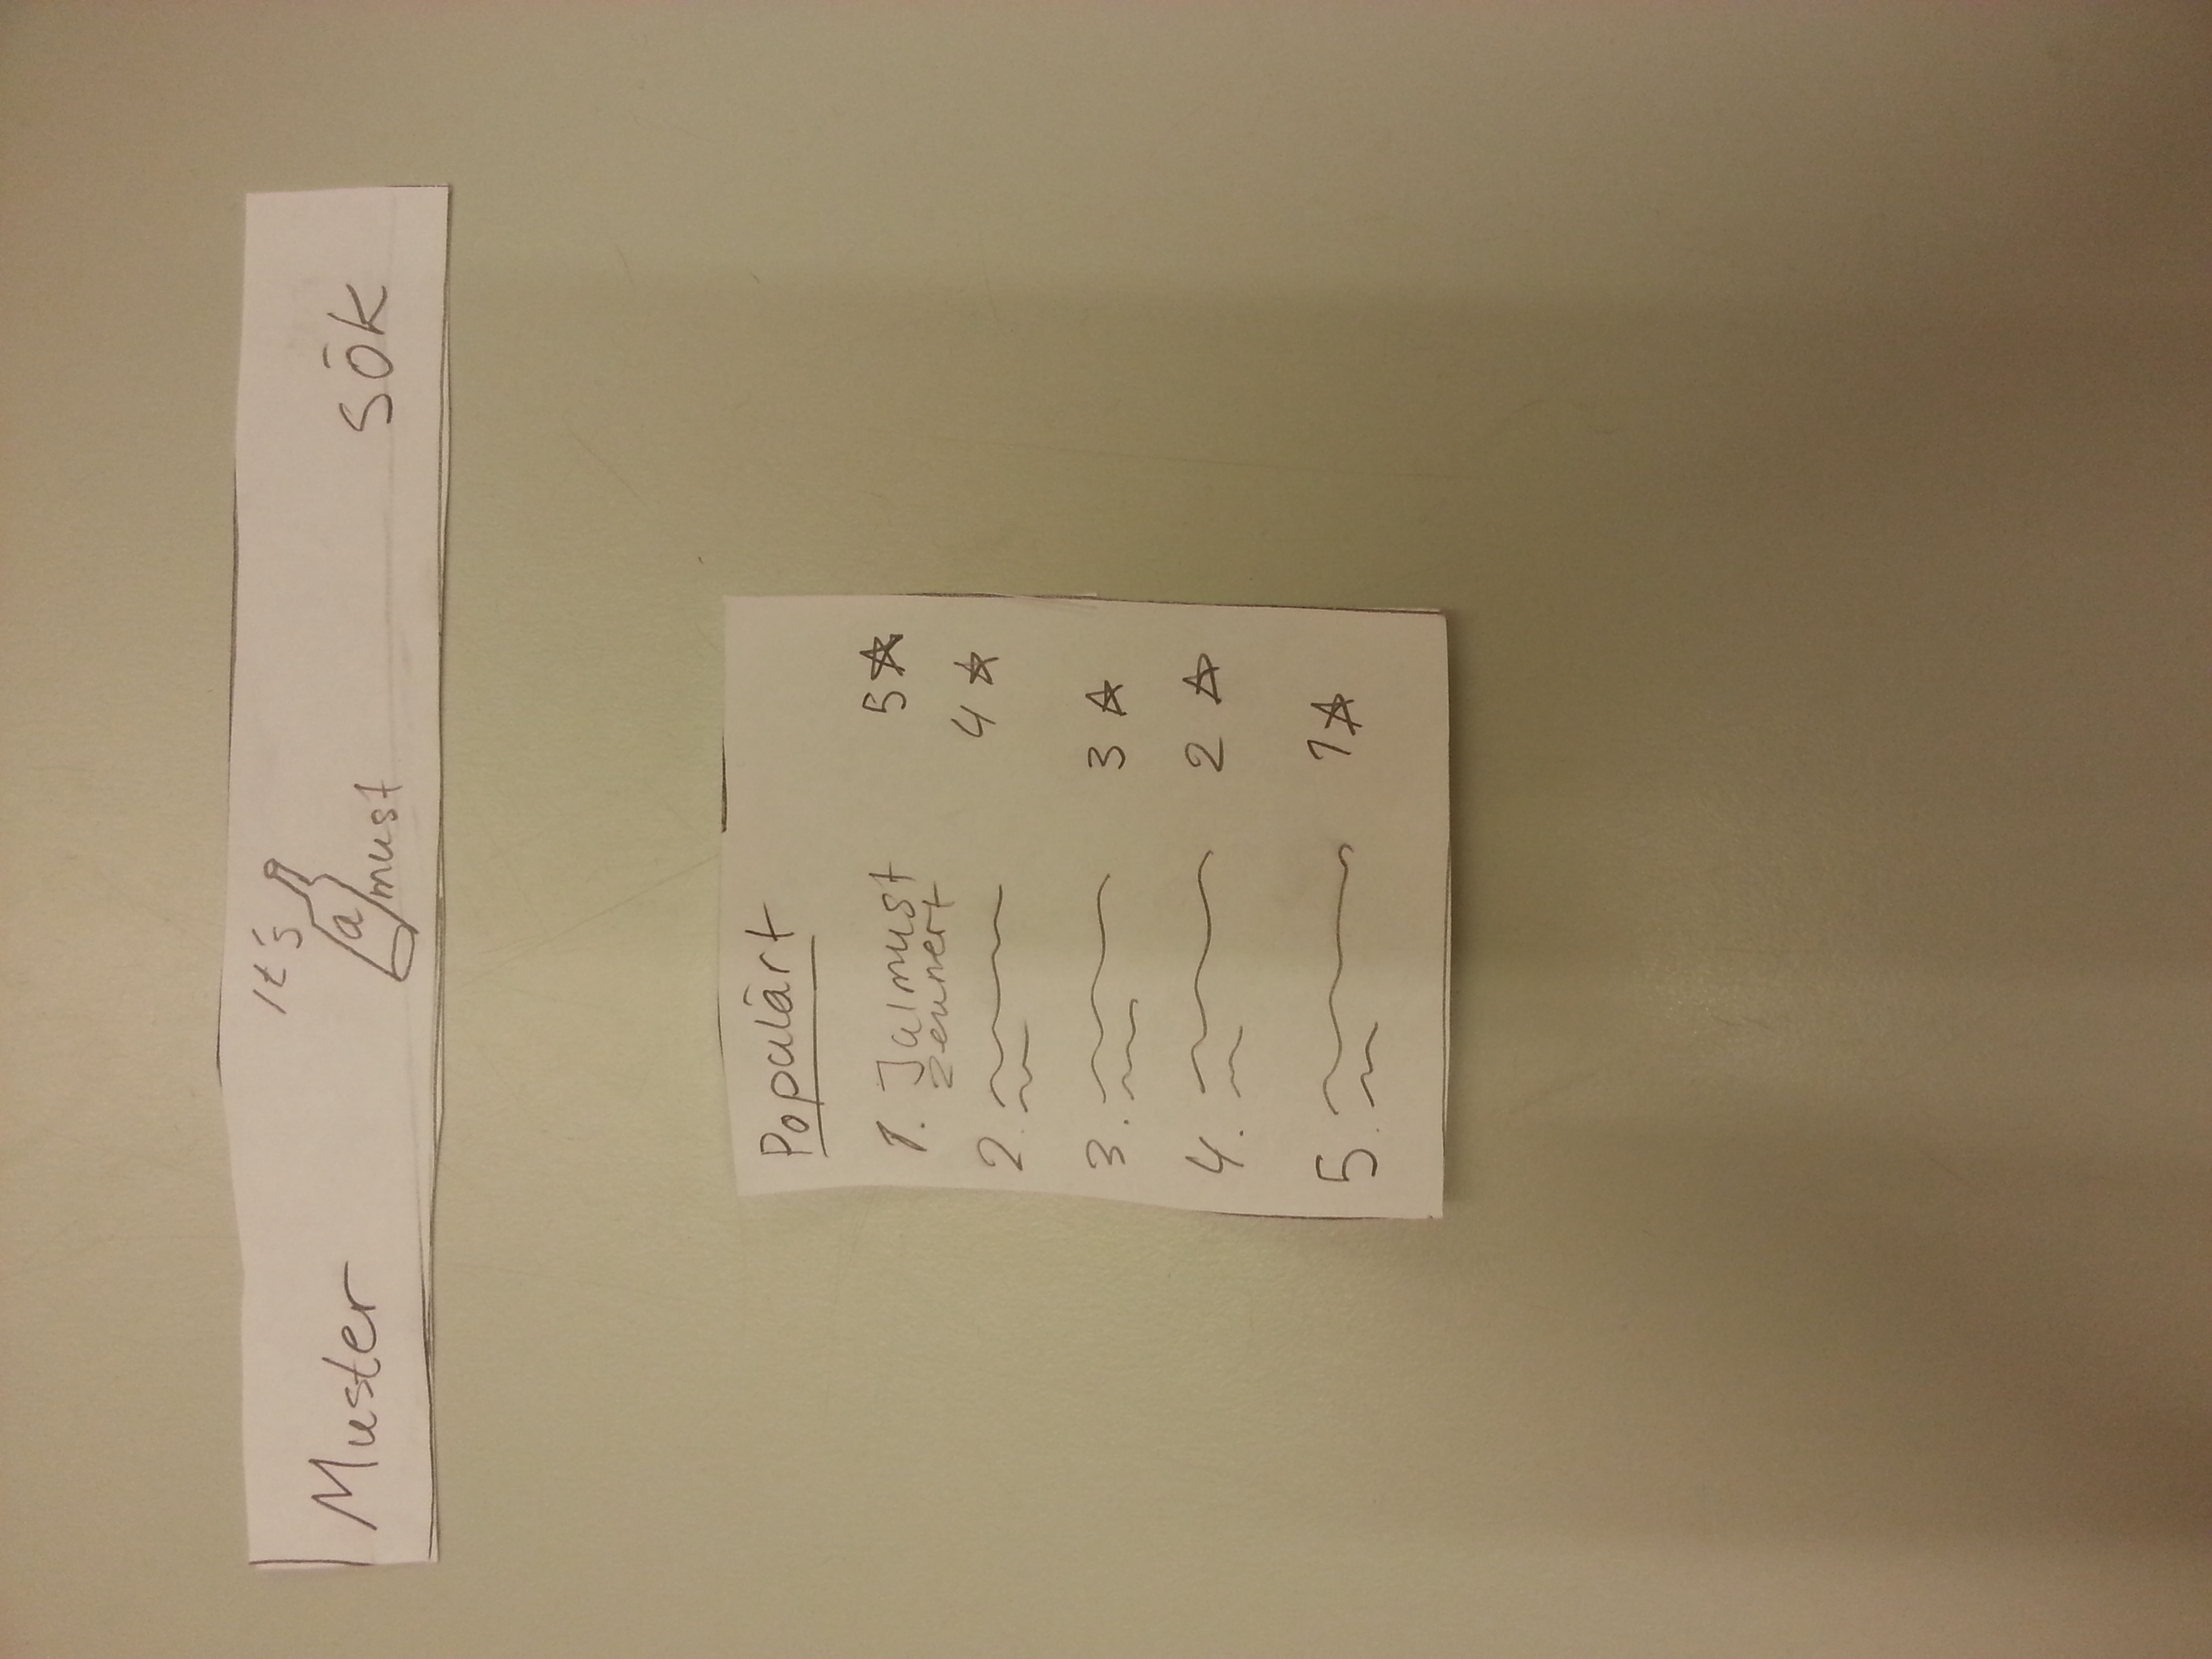 Muster
It's
a
must
SÖK
Populärt
1. Julmust 5☆
zeunert
2. 4☆
3. 3☆
4. 2☆
5. 1☆